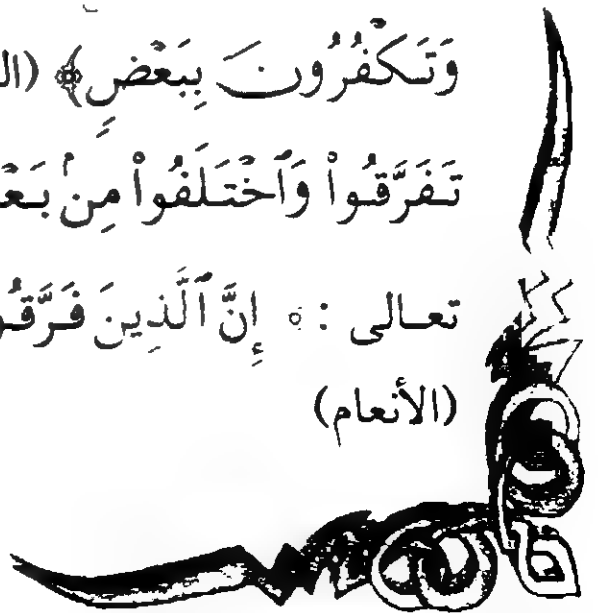 وَتَكْفُرُونَ بِبَعْضٍ﴾ (
تَفَرَّقُواْ وَٱخْتَلَفُواْ مِنۢ
تعالى : إِنَّ ٱلَّذِينَ
(الأنعام)